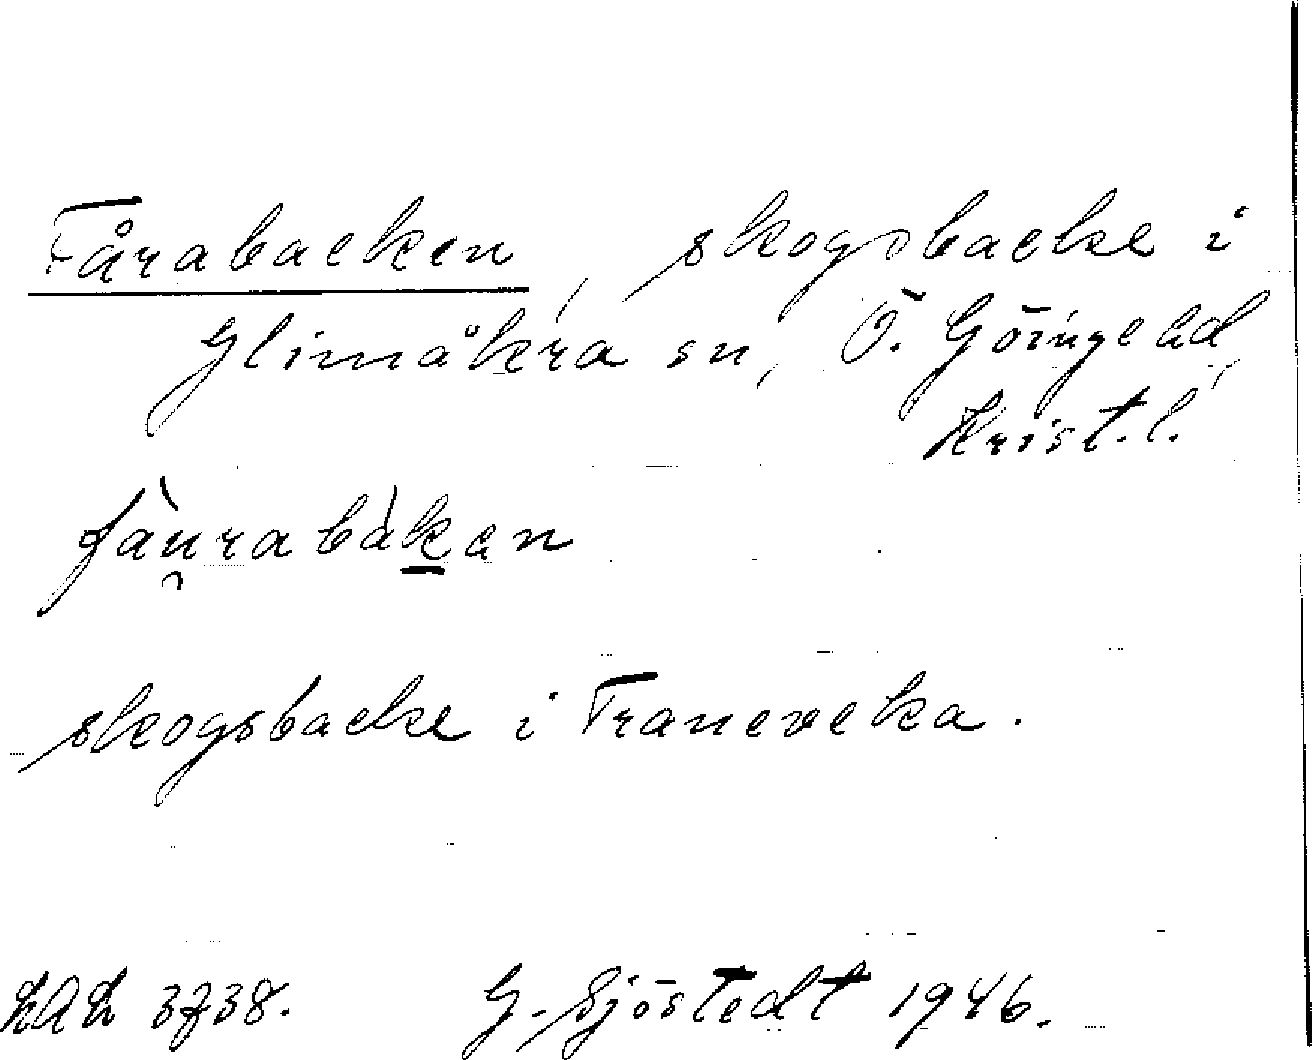 Fårabacken, skogsbacke i
Glimåkra sn, Ö. Göinge hd,
Krist. l.
fàu̯rabàk̲an
skogsbacke i Traneveka.
LAL 3738. G. Sjöstedt 1946.